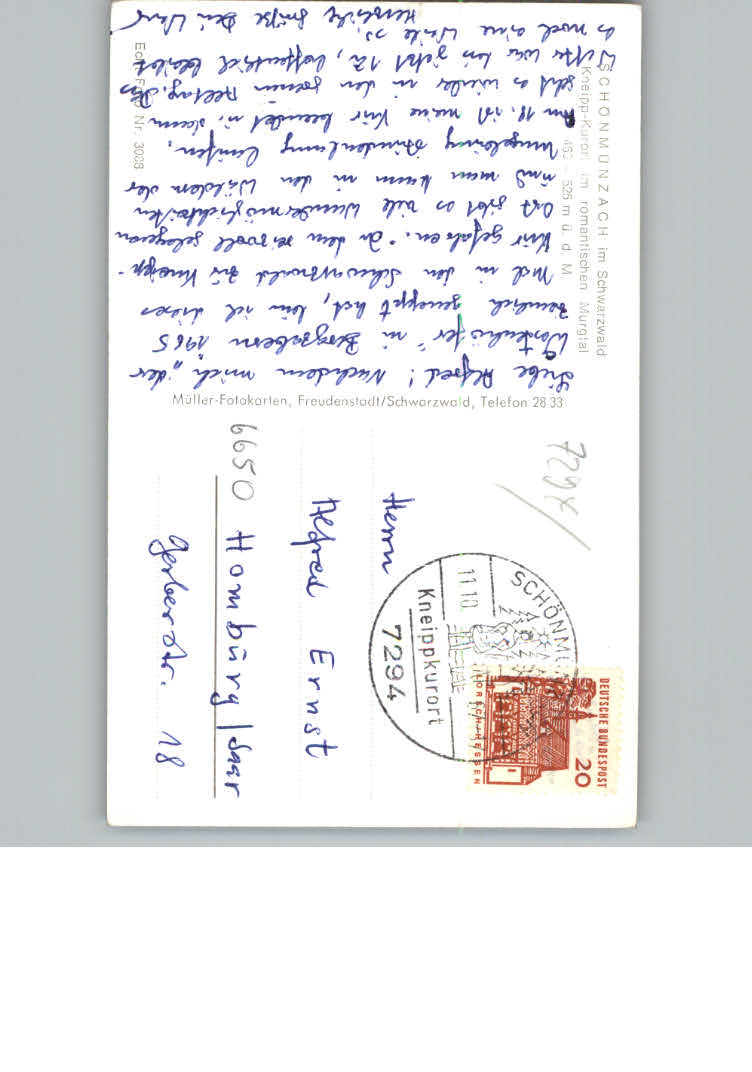 SCHÖNMÜNZACH im Schwarzwald
Kneipp-Kurort im romantischen Murgtal
460 - 525 m ü. d. M.
Echt Foto Nr. 3028
Müller-Fotokarten, Freudenstadt/Schwarzwald, Telefon 28 33
Liebe Alfred! Nachdem mich „der
Westenhöfer" in Bergzabern 1965
ziemlich geneppt hat, bin ich dieses
Mal in den Schwarzwald zur Kneipp-
Kur gefahren. In dem reizvoll gelegenen
Ort gibt es viele Wandermöglichkeiten
und man kann in den Wäldern der
Umgebung stundenlang laufen.
Am 18. ist meine Kur beendet u. dann
geht es wieder in den grauen Alltag. Das
Wetter war bis jetzt 1a, hoffentlich bleibt
es noch eine Weile so.
Herzliche Grüße Dein
7294
SCHÖNM
11.10
Kneippkurort
7294
DEUTSCHE BUNDESPOST
20
LORSCH/HESSEN
Herrn
Alfred Ernst
6650 Homburg/Saar
Gerberstr. 18